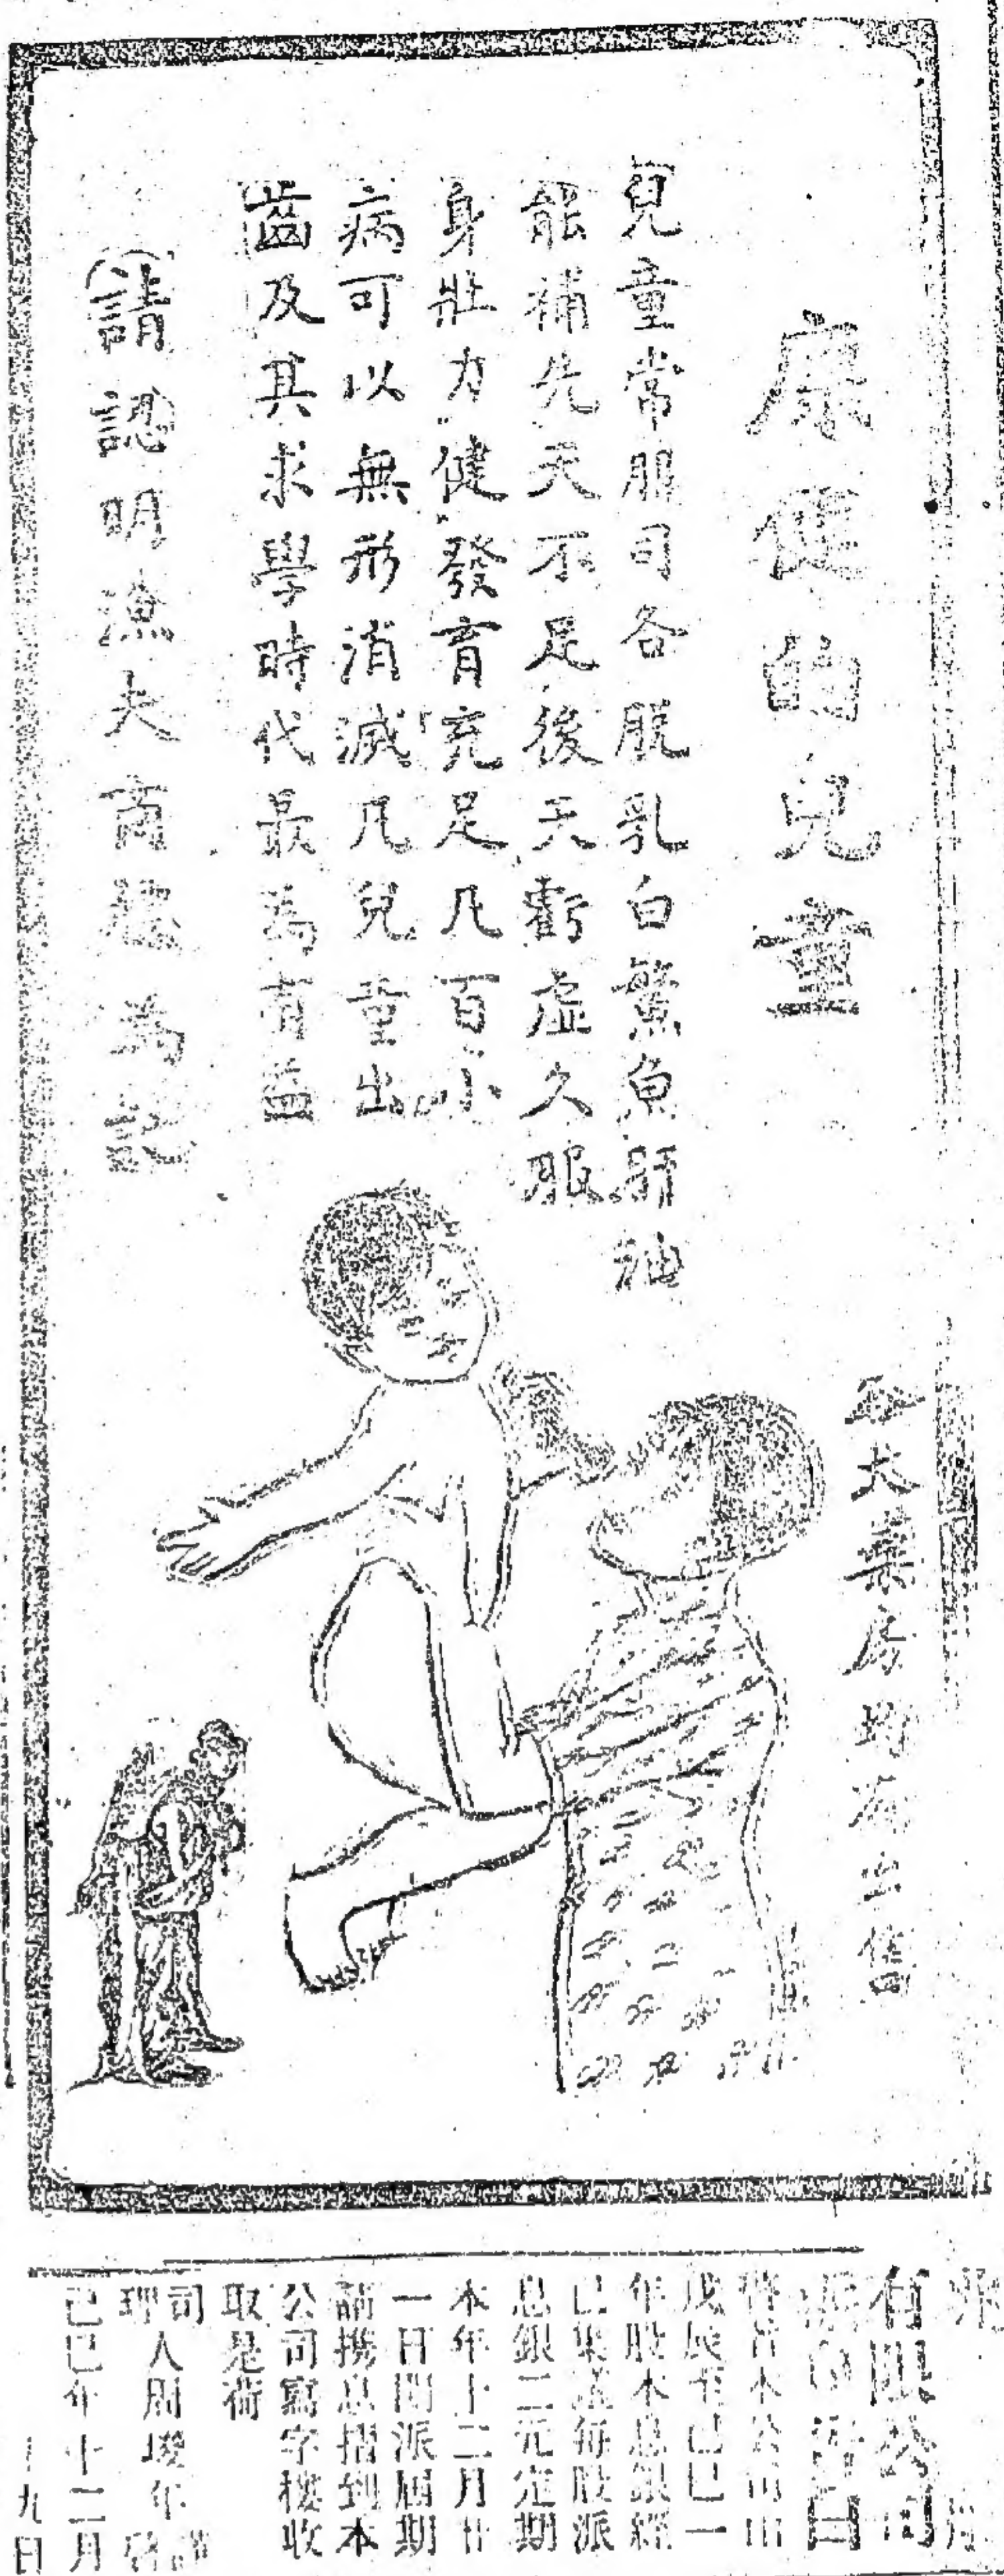 康健的兒童
兒童常服司各脫乳白鰵魚肝油
能補先天不足後天虧虛久服
身壯力健發育充足凡百小
病可以無形消滅凡兒童出
齒及其求學時代最為有益
(請認明漁夫商標為記
大藥房均有出售
有限公司
年股本息銀經
已集議每股派
息銀二元定期
本年十二月廿
一日開派屆期
請携息摺到本
公司寫字樓收
取是荷
司
理人周埈年
己巳年十二月
九日